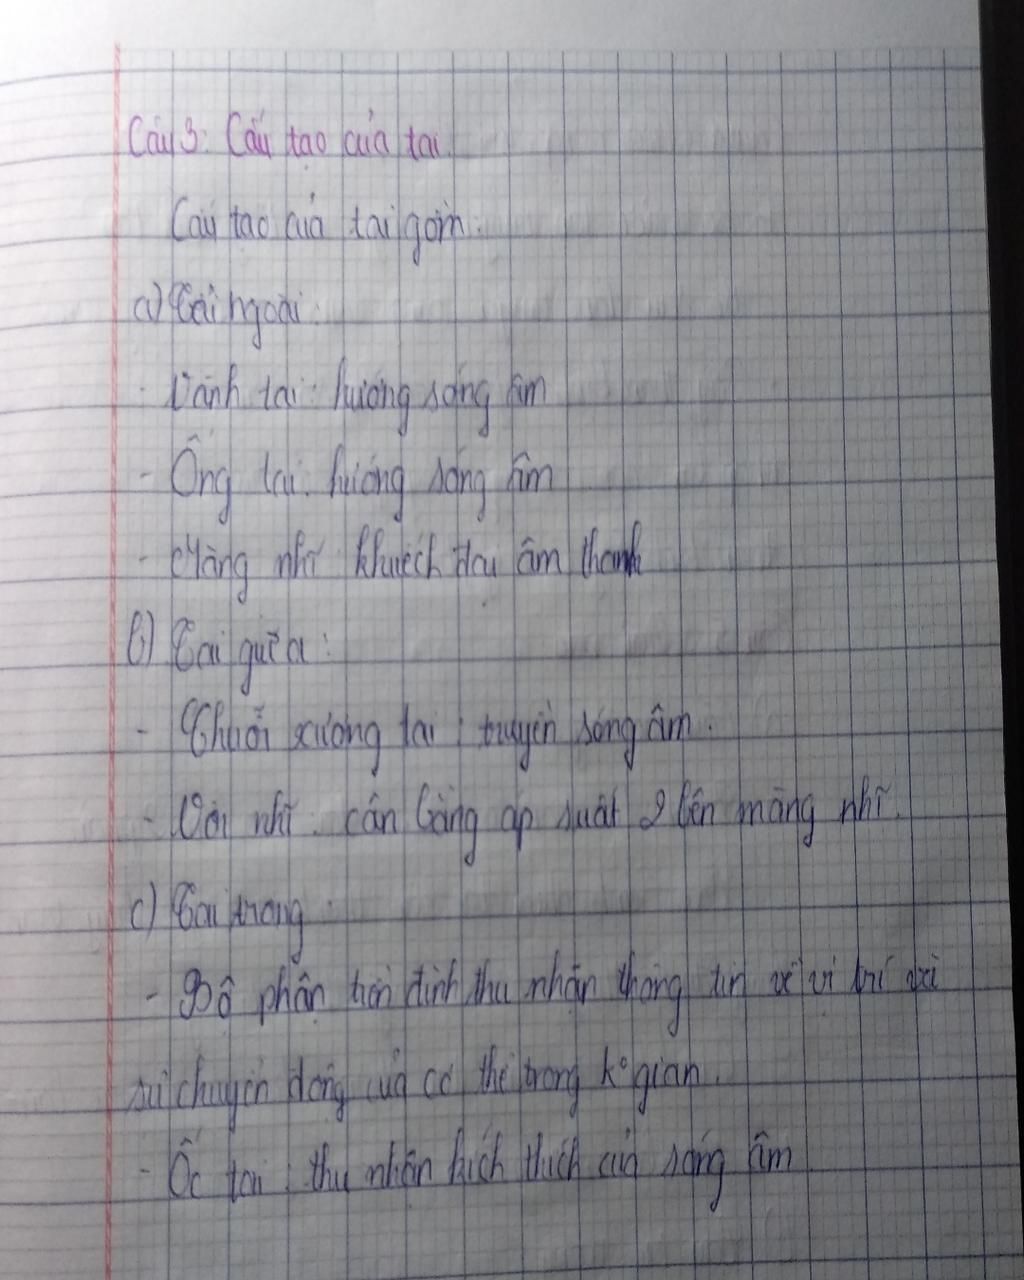 Câu 3: Cấu tạo của tai.
Cấu tạo của tai gồm:
a) Tai ngoài:
- Vành tai: hướng sóng âm
- Ống tai: hướng sóng âm
- Màng nhĩ khuếch đại âm thanh
b) Tai giữa:
- Chuỗi xương tai: truyền sóng âm.
- Vòi nhĩ: cân bằng áp suất 2 bên màng nhĩ.
c) Tai trong:
- Bộ phận tiền đình thu nhận thông tin về vị trí và
sự chuyển động của cơ thể trong k° gian.
- Ốc tai: thu nhận kích thích của sóng âm